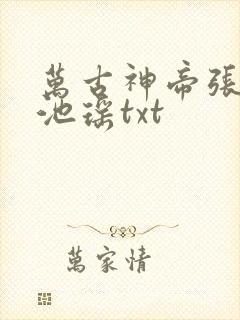 萬古神帝張
池瑤txt
萬家情